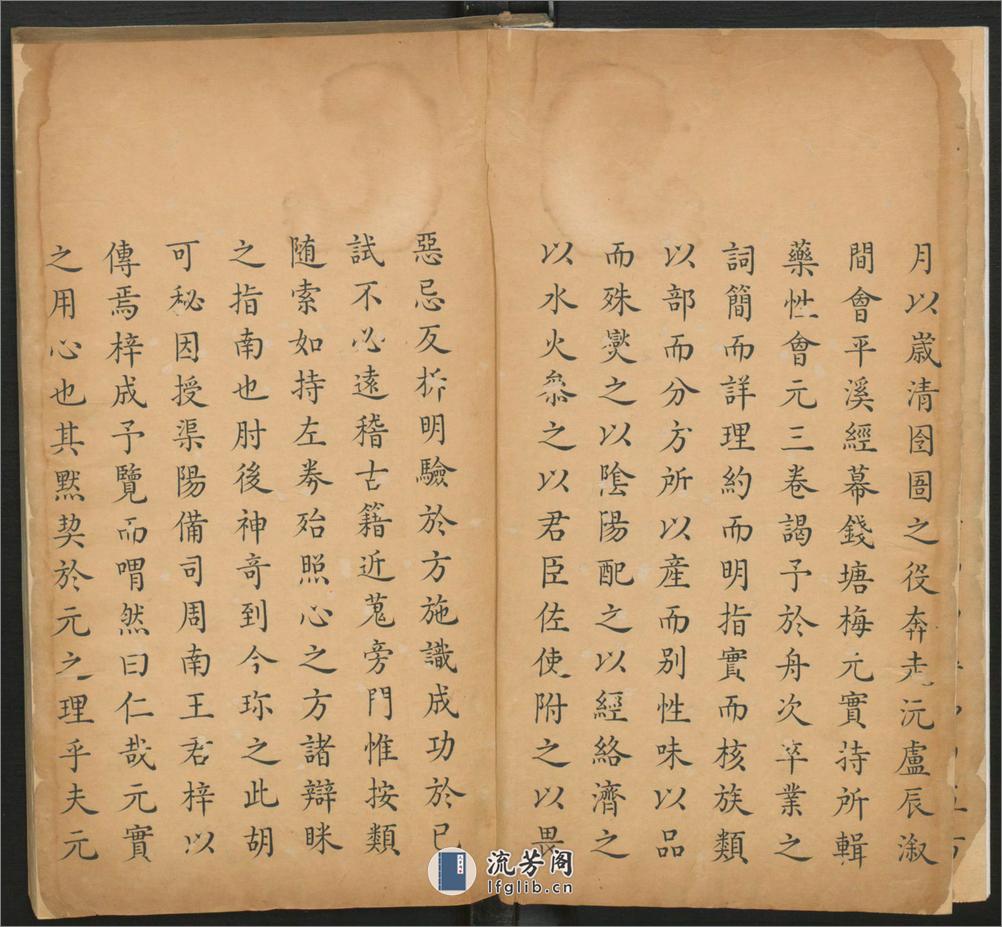 月以歲清囹圄之役奔走沅盧辰溆
間會平溪經幕錢塘梅元實持所輯
藥性會元三卷謁予於舟次卒業之
詞簡而詳理約而明指實而核族類
以部而分方所以産而别性味以品
而殊爕之以陰陽配之以經絡濟之
以水火叅之以君臣佐使附之以畏
惡忌反析明驗於方施識成功於已
試不必遠稽古籍近蒐旁門惟按類
随索如持左劵殆照心之方諸辯眯
之指南也肘後神奇到今珎之此胡
可秘因授渠陽備司周南王君梓以
傳焉梓成予覽而喟然曰仁哉元實
之用心也其黙契於元之理乎夫元
流芳阁
lfglib.cn